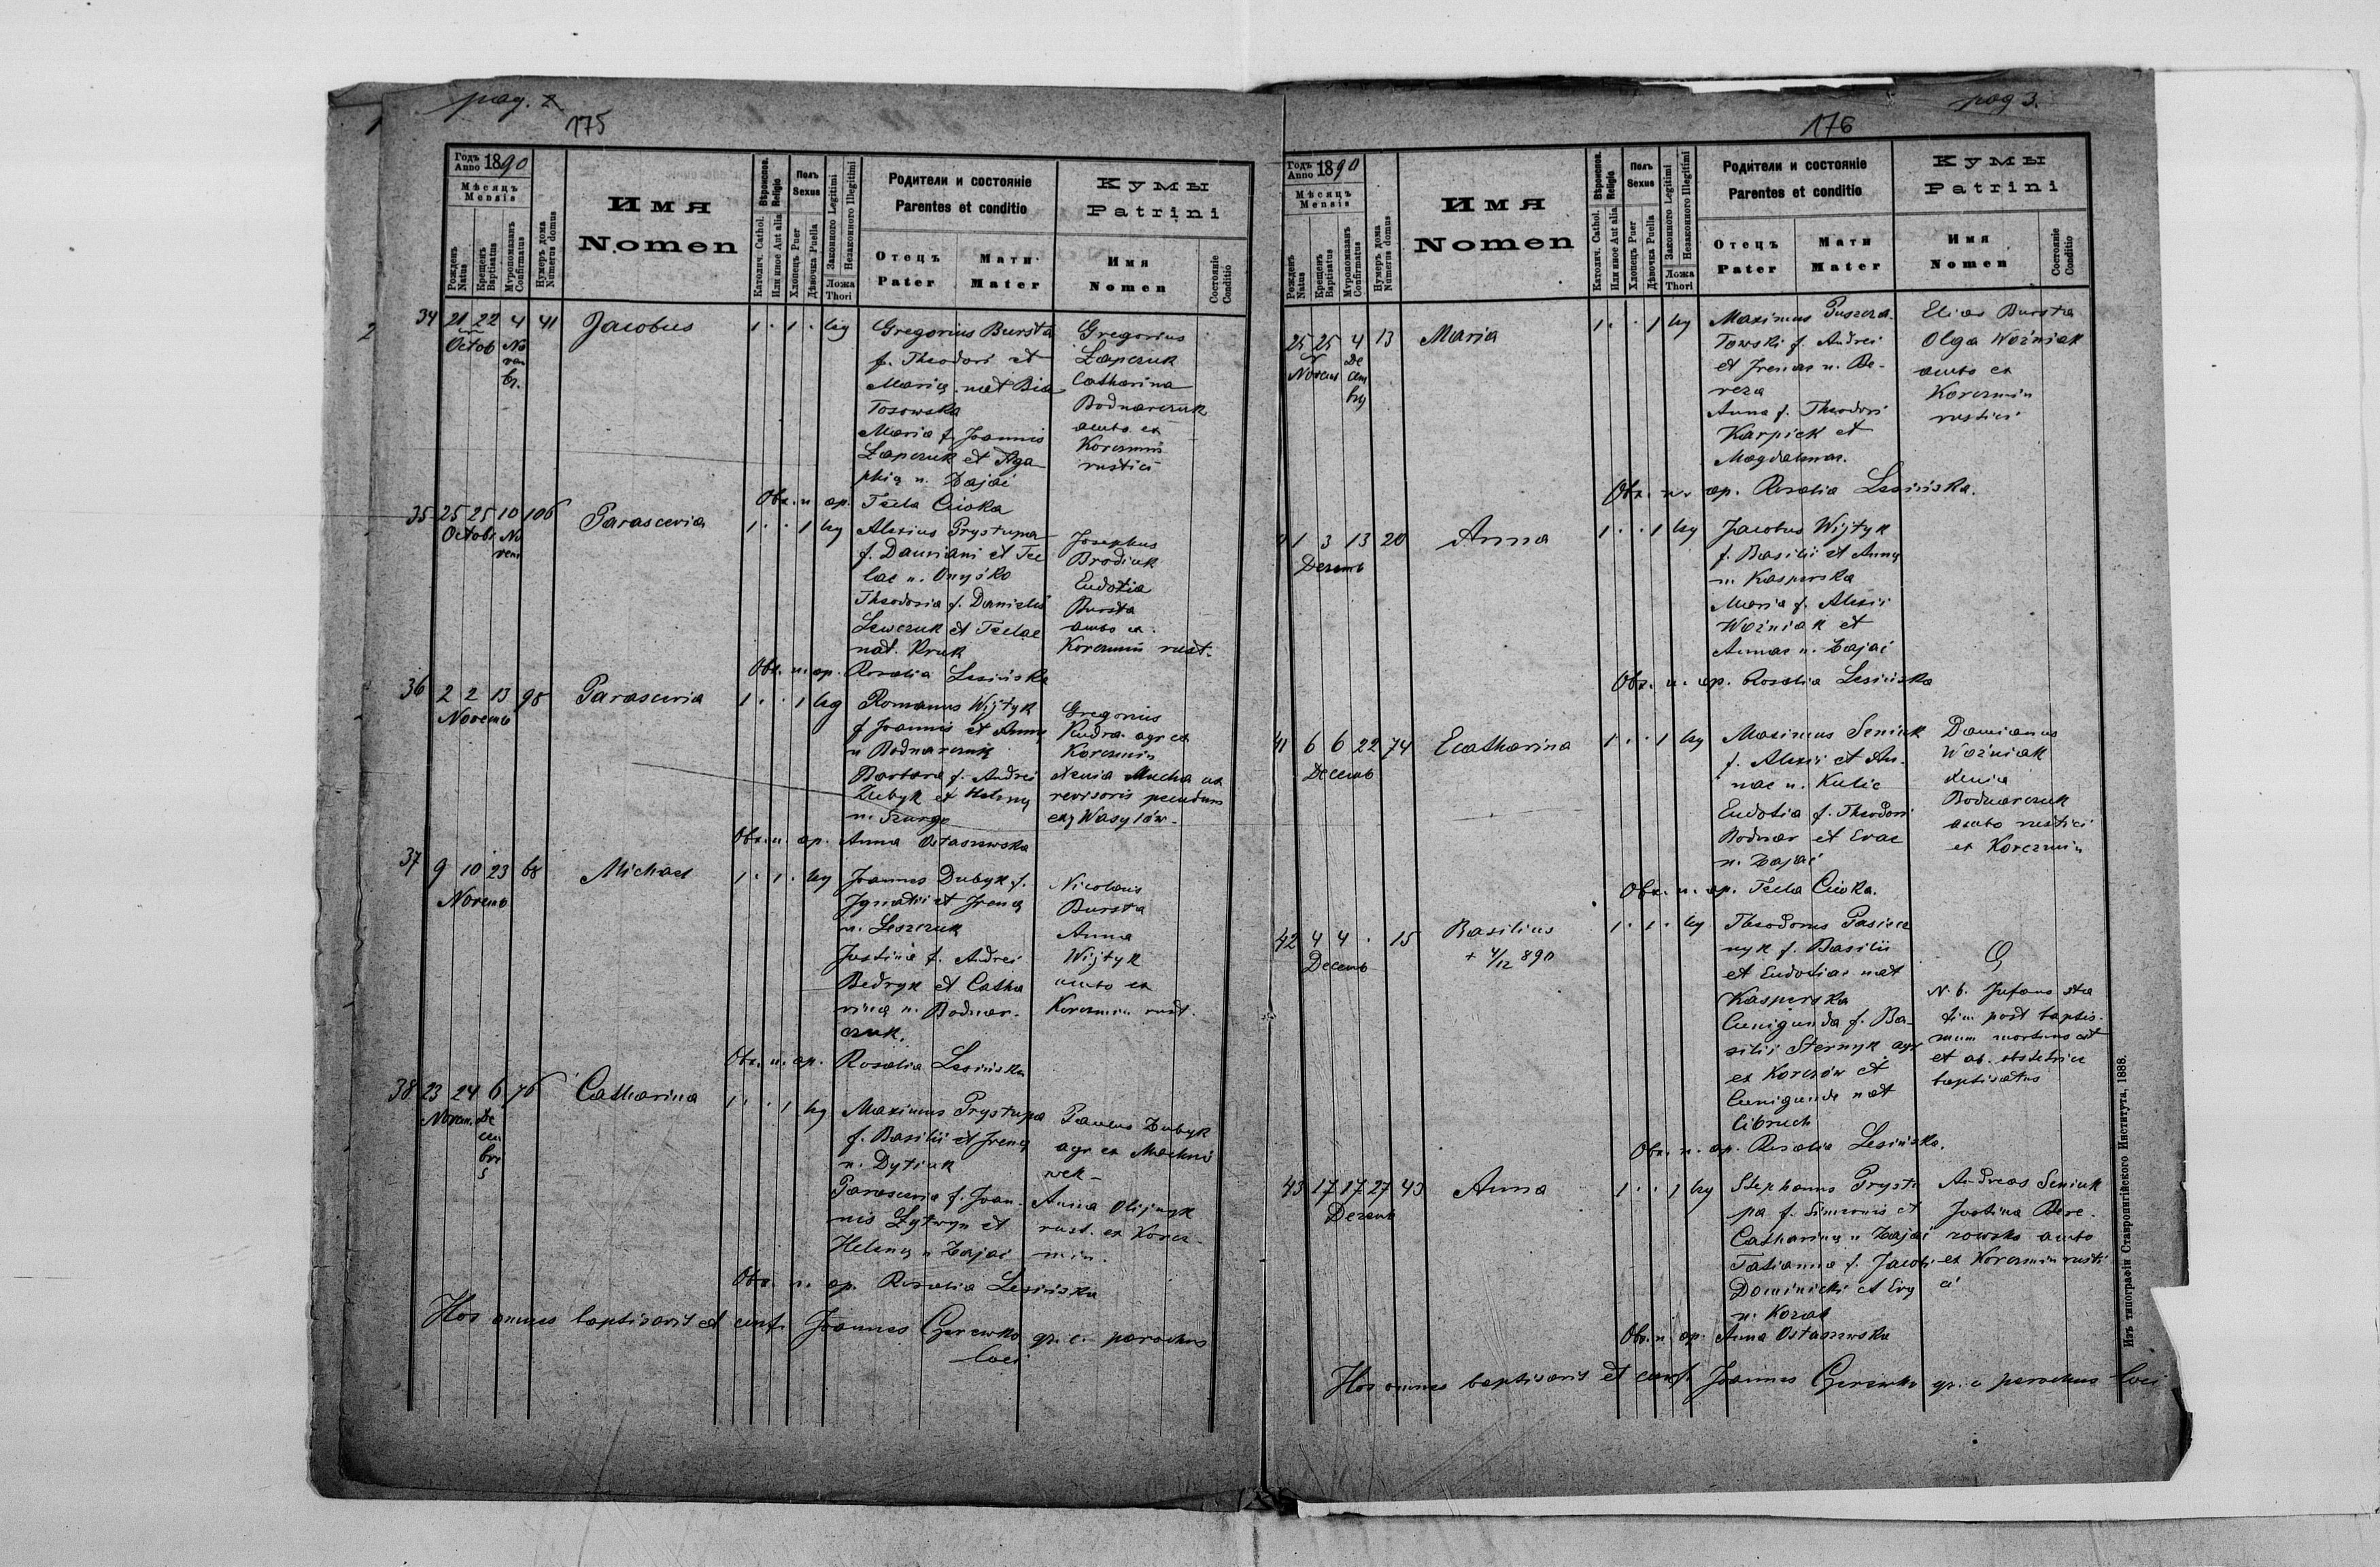 pag. 2
175
Годъ Anno 1890
Мѣсяцъ Mensis
Рожденъ Natus
Крещенъ Baptisatus
Муропомазанъ Confirmatus
Нумеръ дома Numerus domus
Имя
Nomen
Вѣроиспов. Religio
Католич. Cathol.
Или иное Aut alia
Полъ Sexus
Хлопецъ Puer
Дѣвочка Puella
Законного Legitimi
Незаконного Illegitimi
Ложа Thori
Родители и состояніе
Parentes et conditio
Отецъ Pater
Мати Mater
Кумы
Patrini
Имя Nomen
Состояніе Conditio
34 21 22 4 41 Jacobus 1 · 1 · leg
Octob No
vem
br.
Gregorius Bursta
f. Theodori et
Marię nat Bia
łosowska
Maria f. Joannis
Łapczuk et Aga
phię n. Zając
Gregorius
Łapczuk
Catharina
Bodnarczuk
ambo ex
Korczmin
rustici
Obs. n. ap. Tecla Ciuka
35 25 25 10 106 Parascevia 1 · · 1 leg
Octobr No
vem
Alexius Prystupa
f. Damiani et Tec
lae n. Onyśko
Theodosia f. Danielis
Lewczuk et Teclae
nat. Kruk
Josephus
Brodiuk
Eudotia
Bursta
ambo ex
Korczmin rust.
Obs. n. ap. Rosalia Lesińska
36 2 2 13 98 Parascevia 1 · · 1 leg
Novemb
Romanus Wijtyk
f Joannis et Annę
n Bodnarczuk
Barbara f. Andrei
Zubyk et Helenę
n.
Gregorius
Kudra agr ex
Korczmin
Xenia Mucha ux
revisoris pecudum
ex Wasylów
Obs. n. ap. Anna Ostaszewska
37 9 10 23 68 Michael 1 · 1 · leg
Novemb
Joannes Dubyk f.
Ignatii et Irenę
n. Leszczuk
Justina f. Andrei
Bedryk et Catha
rina n. Bodnar-
czuk.
Nicolaus
Bursta
Anna
Wijtyk
ambo ex
Korczmin rust.
Obs. n. ap. Rosalia Lesińska
38 23 24 6 76 Catharina 1 · · 1 leg
Novem. De
cem
bri
s
Maximus Prystupa
f. Basilii et Irenę
n. Dytiuk
Parascevia f. Joan-
nis Łytwyn et
Helenę n Zając
Paulus Dubyk
agr ex Machnó
wek -
Anna Olijnyk
rust. ex Korcz-
min.
Obs. n. ap. Rosalia Lesińska
Hos omnes baptisavit et conf. Joannes gr. c. parochus
loci
pag 3.
176
Годъ Anno 1890
Мѣсяцъ Mensis
Рожденъ Natus
Крещенъ Baptisatus
Муропомазанъ Confirmatus
Нумеръ дома Numerus domus
Имя
Nomen
Вѣроиспов. Religio
Католич. Cathol.
Или иное Aut alia
Полъ Sexus
Хлопецъ Puer
Дѣвочка Puella
Законного Legitimi
Незаконного Illegitimi
Ложа Thori
Родители и состояніе
Parentes et conditio
Отецъ Pater
Мати Mater
Кумы
Patrini
Имя Nomen
Состояніе Conditio
25 25 4 13 Maria 1 · · 1 leg
Novem De
cem
br
Maximus Puszcza-
łowski f. Andrei
et Irenae n. Be-
reza
Anna f. Theodori
Karpick et
Magdalenae.
Elias Bursta
Olga Woźniak
ambo ex
Korczmin
rustici
Obs. n. ap. Rosalia Lesińska.
1 3 13 20 Anna 1 · · 1 leg
Decemb
Jacobus Wijtyk
f. Basilii et Annę
n. Kasperska
Maria f. Alexii
Woźniak et
Annae n. Zając
Obs. n. ap. Rosalia Lesińska
41 6 6 22 74 Ecatharina 1 · · 1 leg
Decemb
Maximus Seniuk
f. Alexii et An-
nae n. Kulic
Eudotia f. Theodori
Bodnar et Evae
n. Zając
Damianus
Woźniak
Xenia
Bodnarczuk
ambo rustici
ex Korczmin
Obs. n. ap. Tecla Ciuka.
42 4 4 · 15 Basilius 1 · 1 · leg
Decemb + 4/12 890
Theodorus Pasiecz
nyk f. Basilii
et Eudotiae nat
Kasperska
Cunigunda f. Ba-
silii Sternyk agr
ex Korczów et
Cunigunda nat
Cibruch
N. b. Infans sta
tim post baptis-
mum mortuus est
et ab obstetrice
baptisatus
Obs. n. ap. Rosalia Lesińska.
43 17 17 27 43 Anna 1 · · 1 leg
Decemb
Stephanus Prystu
pa f. Simeonis et
Catharinę n Zając
Tatianna f. Jacobi
Dominicki et Evę
n. Kozak
Andreas Seniuk
Justina Bere-
zowska ambo
ex Korczmin rusti
ci
Obs. n. ap. Anna Ostaszewska
Hos omnes baptisavit et conf. Joannes gr. c parochus loci
Изъ типографіи Ставропигійского Института, 1888.